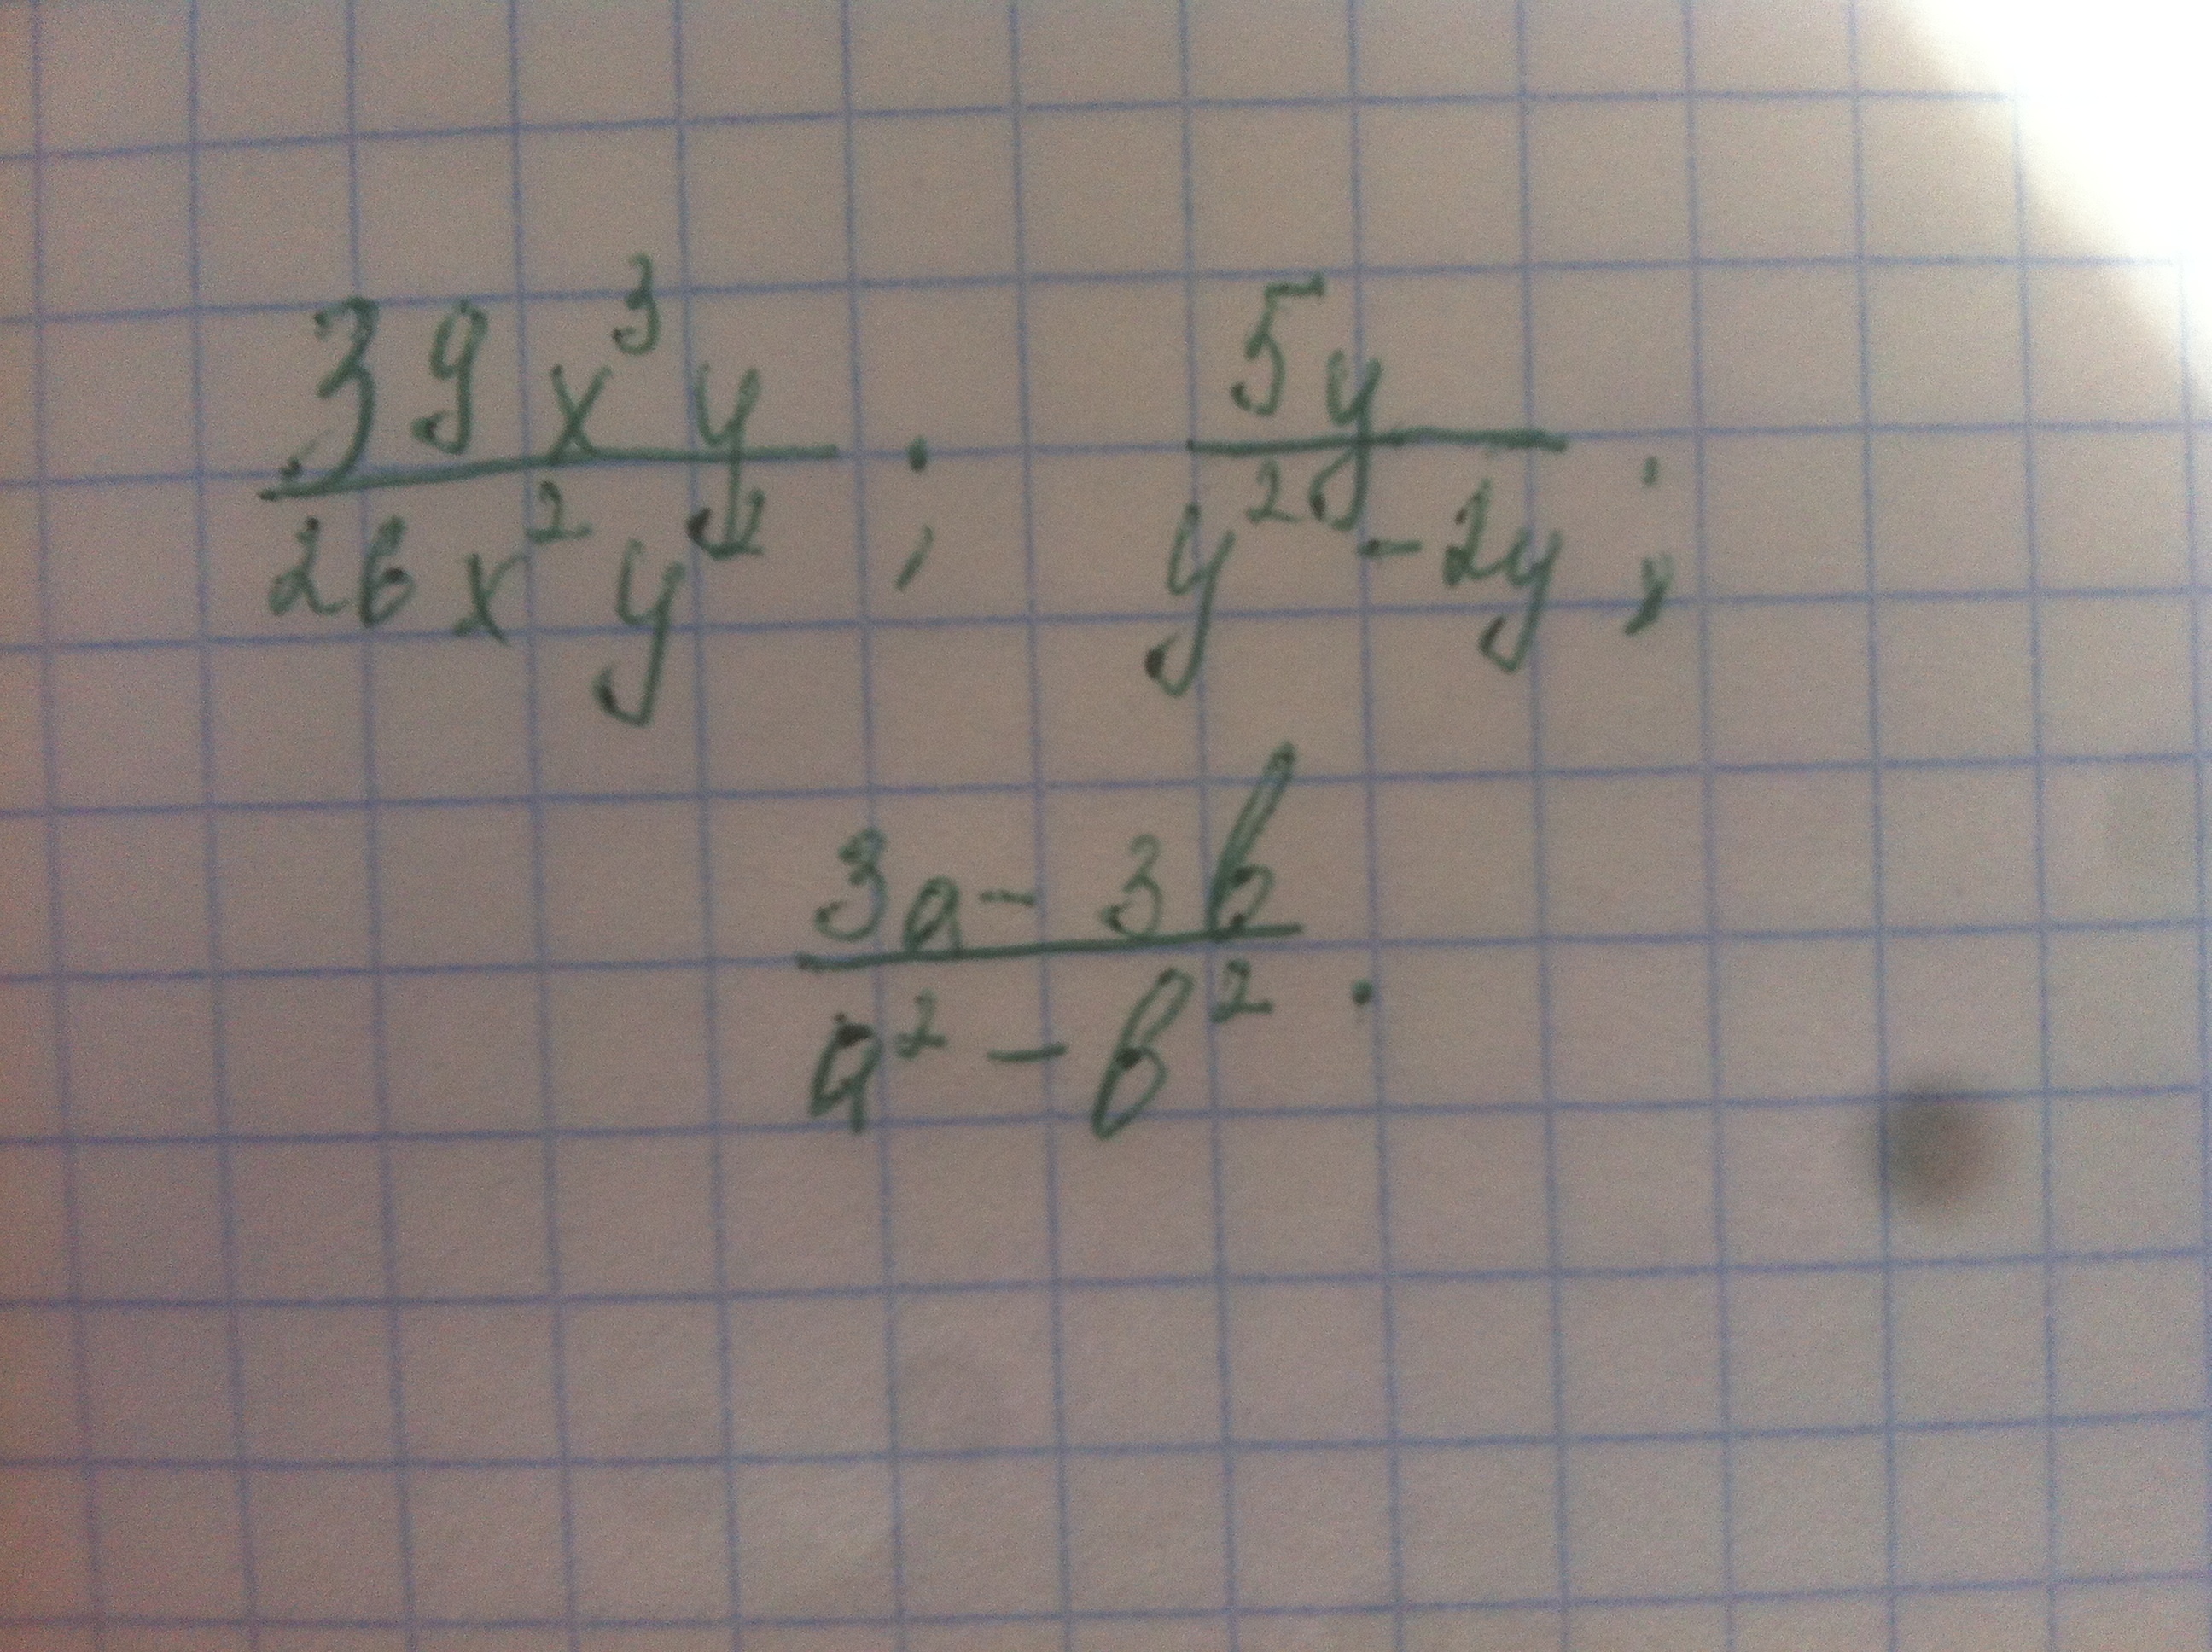 39x³y / 26x²y² ; 5y / y² - 2y ;
3a - 3b / a² - b² .